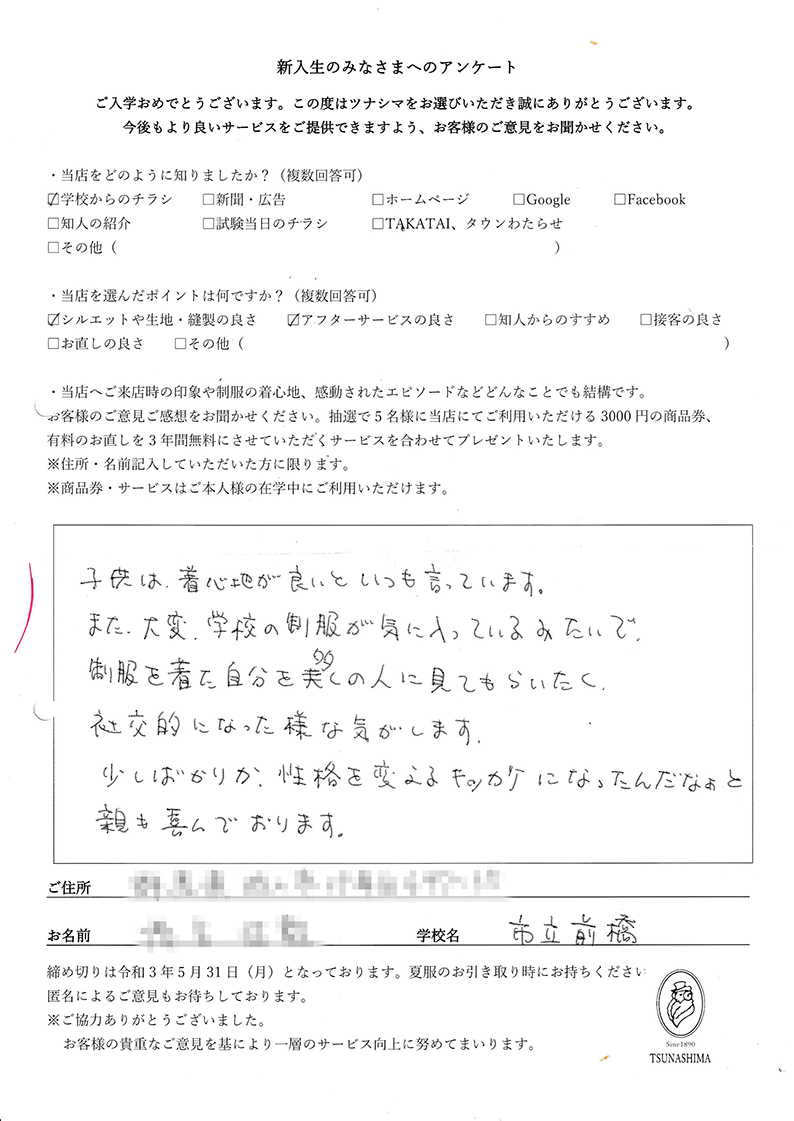 新入生のみなさまへのアンケート
ご入学おめでとうございます。この度はツナシマをお選びいただき誠にありがとうございます。
今後もより良いサービスをご提供できますよう、お客様のご意見をお聞かせください。
・当店をどのように知りましたか？（複数回答可）
☑学校からのチラシ □新聞・広告 □ホームページ □Google □Facebook
□知人の紹介 □試験当日のチラシ □TAKATAI、タウンわたらせ
□その他（ ）
・当店を選んだポイントは何ですか？（複数回答可）
☑シルエットや生地・縫製の良さ ☑アフターサービスの良さ □知人からのすすめ □接客の良さ
□お直しの良さ □その他（ ）
・当店へご来店時の印象や制服の着心地、感動されたエピソードなどどんなことでも結構です。
お客様のご意見ご感想をお聞かせください。抽選で5名様に当店にてご利用いただける3000円の商品券、
有料のお直しを3年間無料にさせていただくサービスを合わせてプレゼントいたします。
※住所・名前記入していただいた方に限ります。
※商品券・サービスはご本人様の在学中にご利用いただけます。
子供は、着心地が良いといつも言っています。
また、大変、学校の制服が気に入っているみたいで、
制服を着た自分を多くの人に見てもらいたく、
社交的になった様な気がします。
少しばかりか、性格を変えるキッカケになったんだなぁと
親も喜んでおります。
ご住所
お名前 学校名 市立前橋
締め切りは令和3年5月31日（月）となっております。夏服のお引き取り時にお持ちください
匿名によるご意見もお待ちしております。
※ご協力ありがとうございました。
お客様の貴重なご意見を基により一層のサービス向上に努めてまいります。
Sine1890
TSUNASHIMA